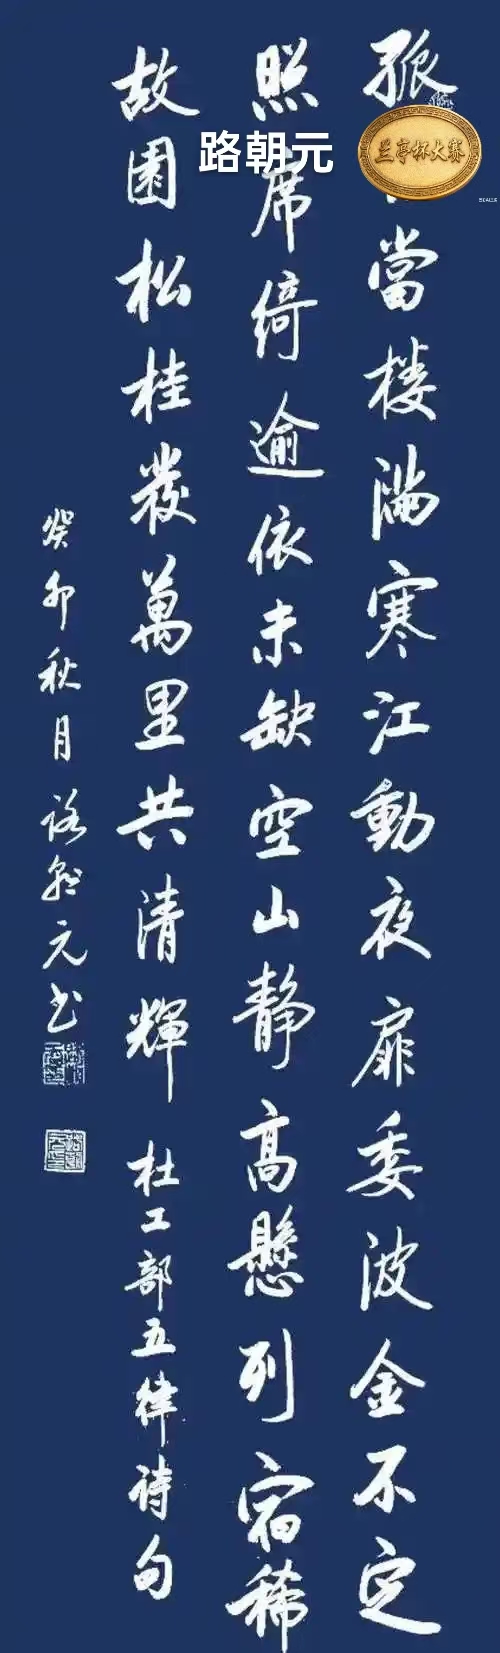 孤當楼满寒江動夜扉委波金不定
照席绮逾依未缺空山静高懸列宿稀
故園松桂發萬里共清輝 杜工部五律诗句
癸卯秋月路朝元书
路朝元
兰亭杯大赛